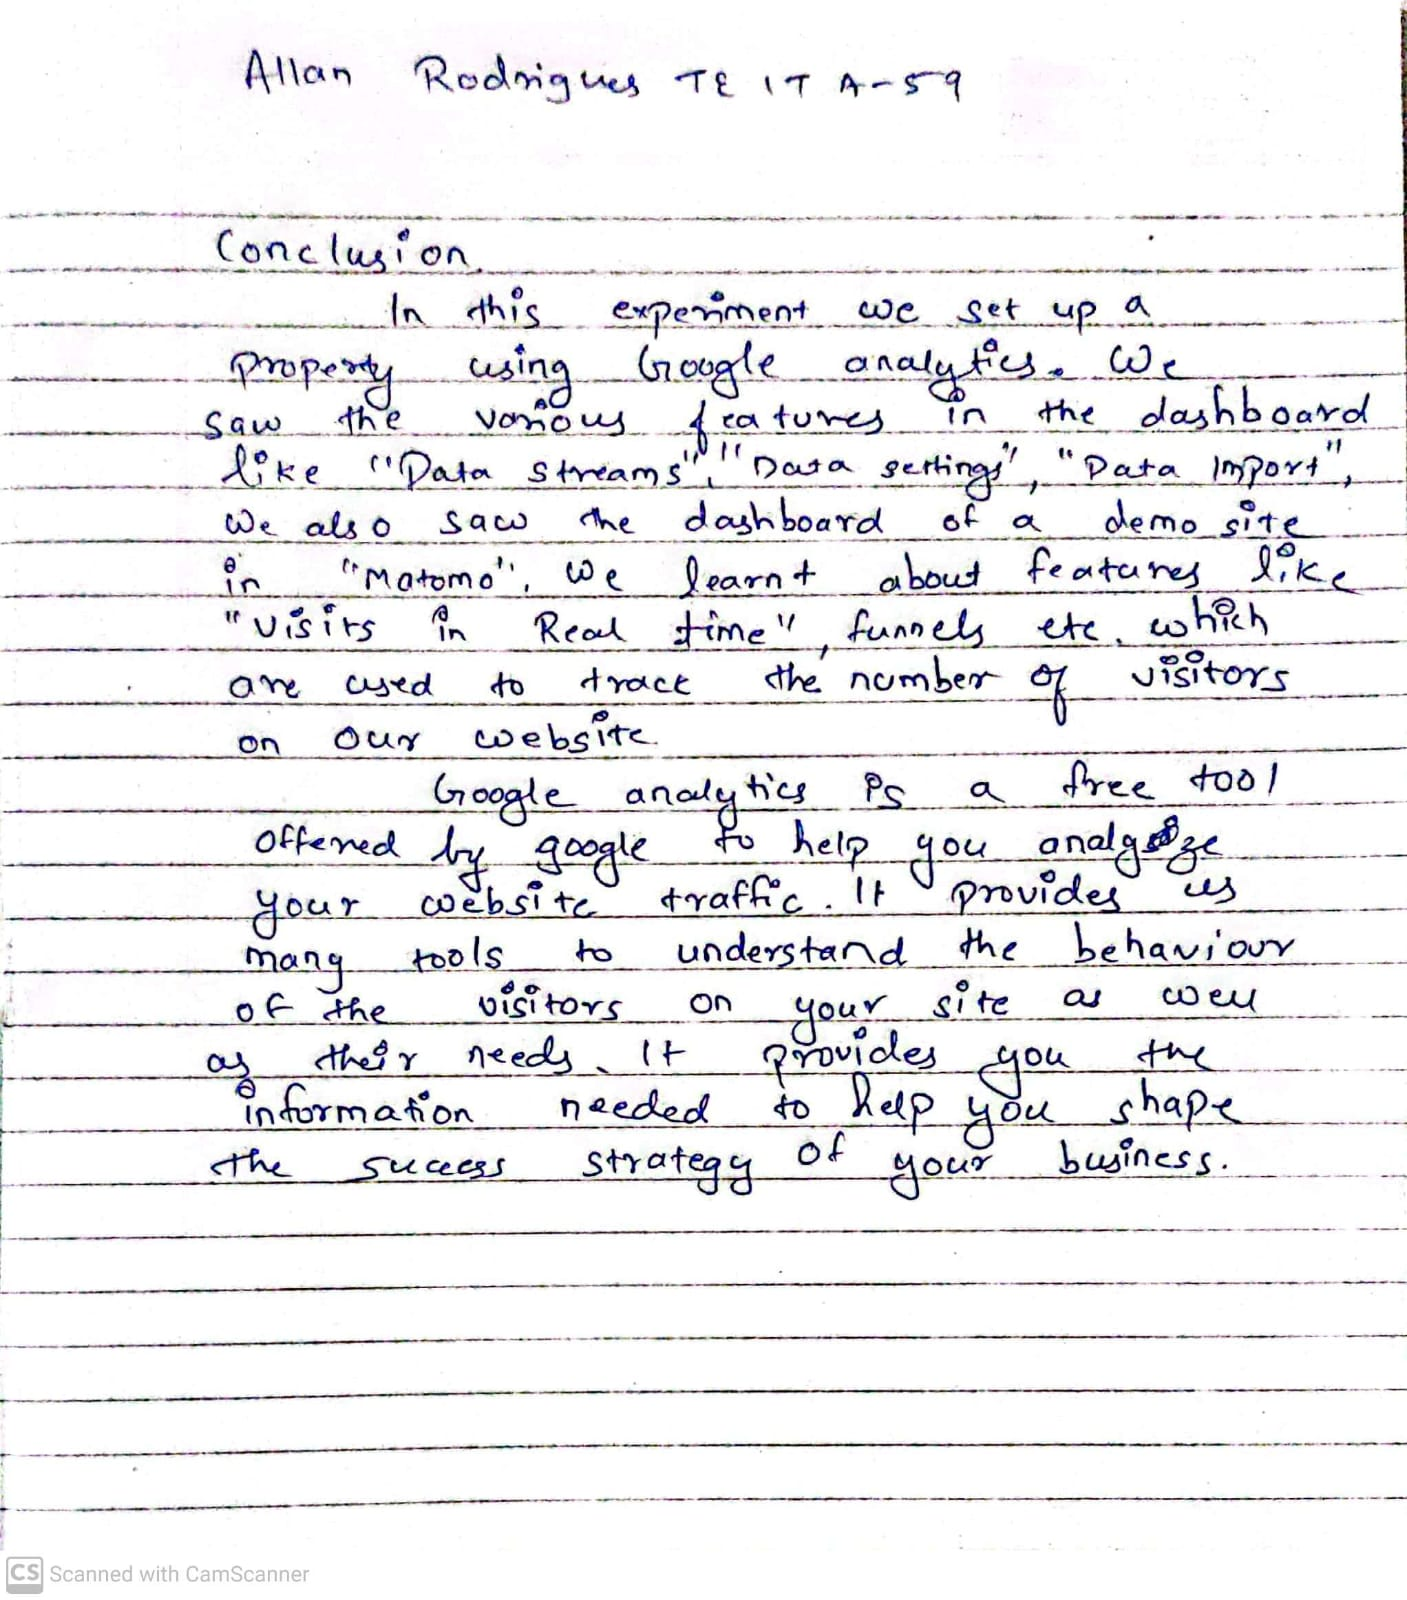 Allan Rodrigues TE IT A-59
Conclusion.
In this experiment we set up a
property using Google analytics. We
saw the various features in the dashboard
like "Data streams", "Data settings", "Data Import",
We also saw the dashboard of a demo site
in "Matomo". We learnt about features like
"Visits in Real time", funnels etc. which
are used to track the number of visitors
on our website.
Google analytics is a free tool
offered by google to help you analyze
your website traffic. It provides us
many tools to understand the behaviour
of the visitors on your site as well
as their needs. It provides you the
information needed to help you shape
the success strategy of your business.
CS Scanned with CamScanner